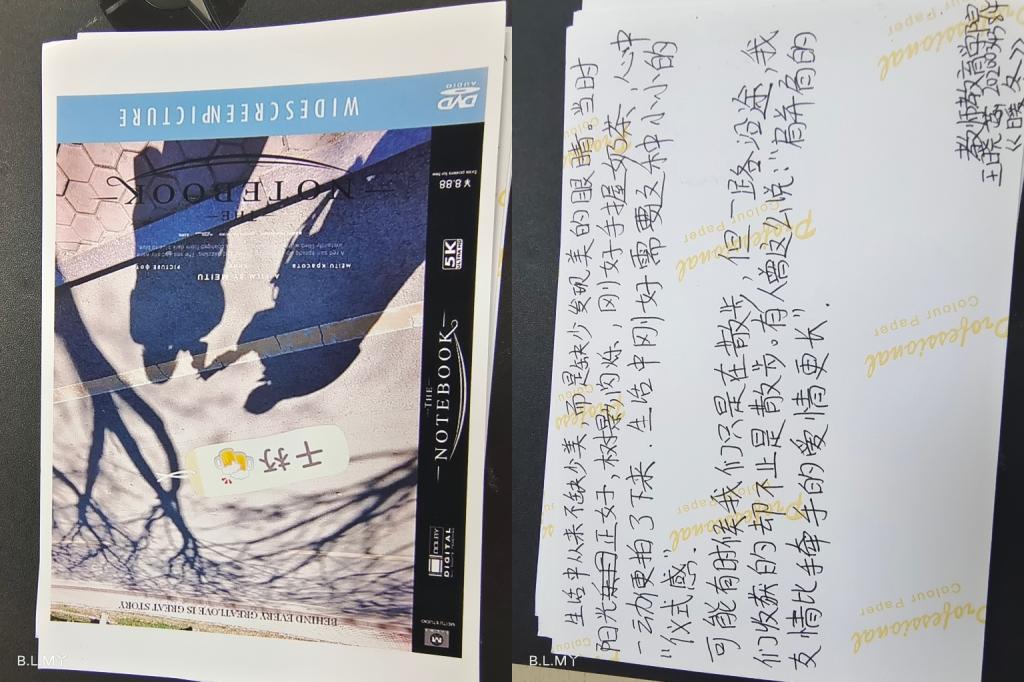 WIDESCREENPICTURE
DVD
AUDIO
THE
NOTEBOOK
A FILM BY MEITU
MEITU КРАСОТА
PICTURE ФОТ
干杯
BEHIND EVERY GREATLOVE IS GREAT STORY
¥8.88
5K
THE
NOTEBOOK
DOLBY
DIGITAL
MEITU STUDIO
B.L.MY
教师教育学院
王晓
生活中从来不缺少美,而是缺少发现美的眼睛。当时
阳光正好,树影闪烁,刚好手握奶茶,心中
一动便拍了下来.生活中刚好需要这种小小的
“仪式感”.
可能有时候我们只是在散步,但一路沿途,我
们收获的却不止是散步。有人曾这么说:“肩并肩的
友情比手牵手的爱情更长”.
Professional
Colour Paper
Professional
Colour Paper
Professional
Colour Paper
B.L.MY